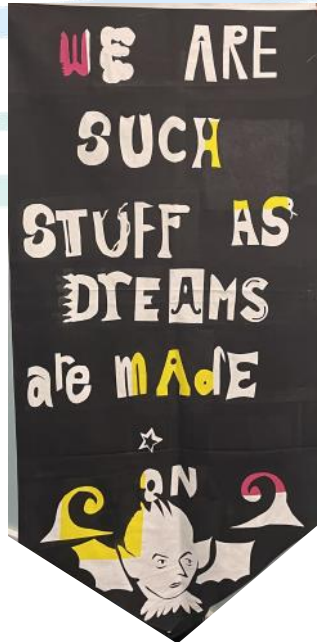 WE ARE
SUCH
STUFF AS
DrEAMS
are mAdE
ON